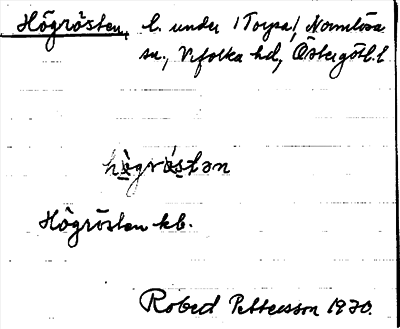 Högrösten, l. under 1 Torpa, Normlösa
sn., Vifolka hd, Östergötl. l.
högröstən
Högrösten kb.
Robert Pettersson 1930.